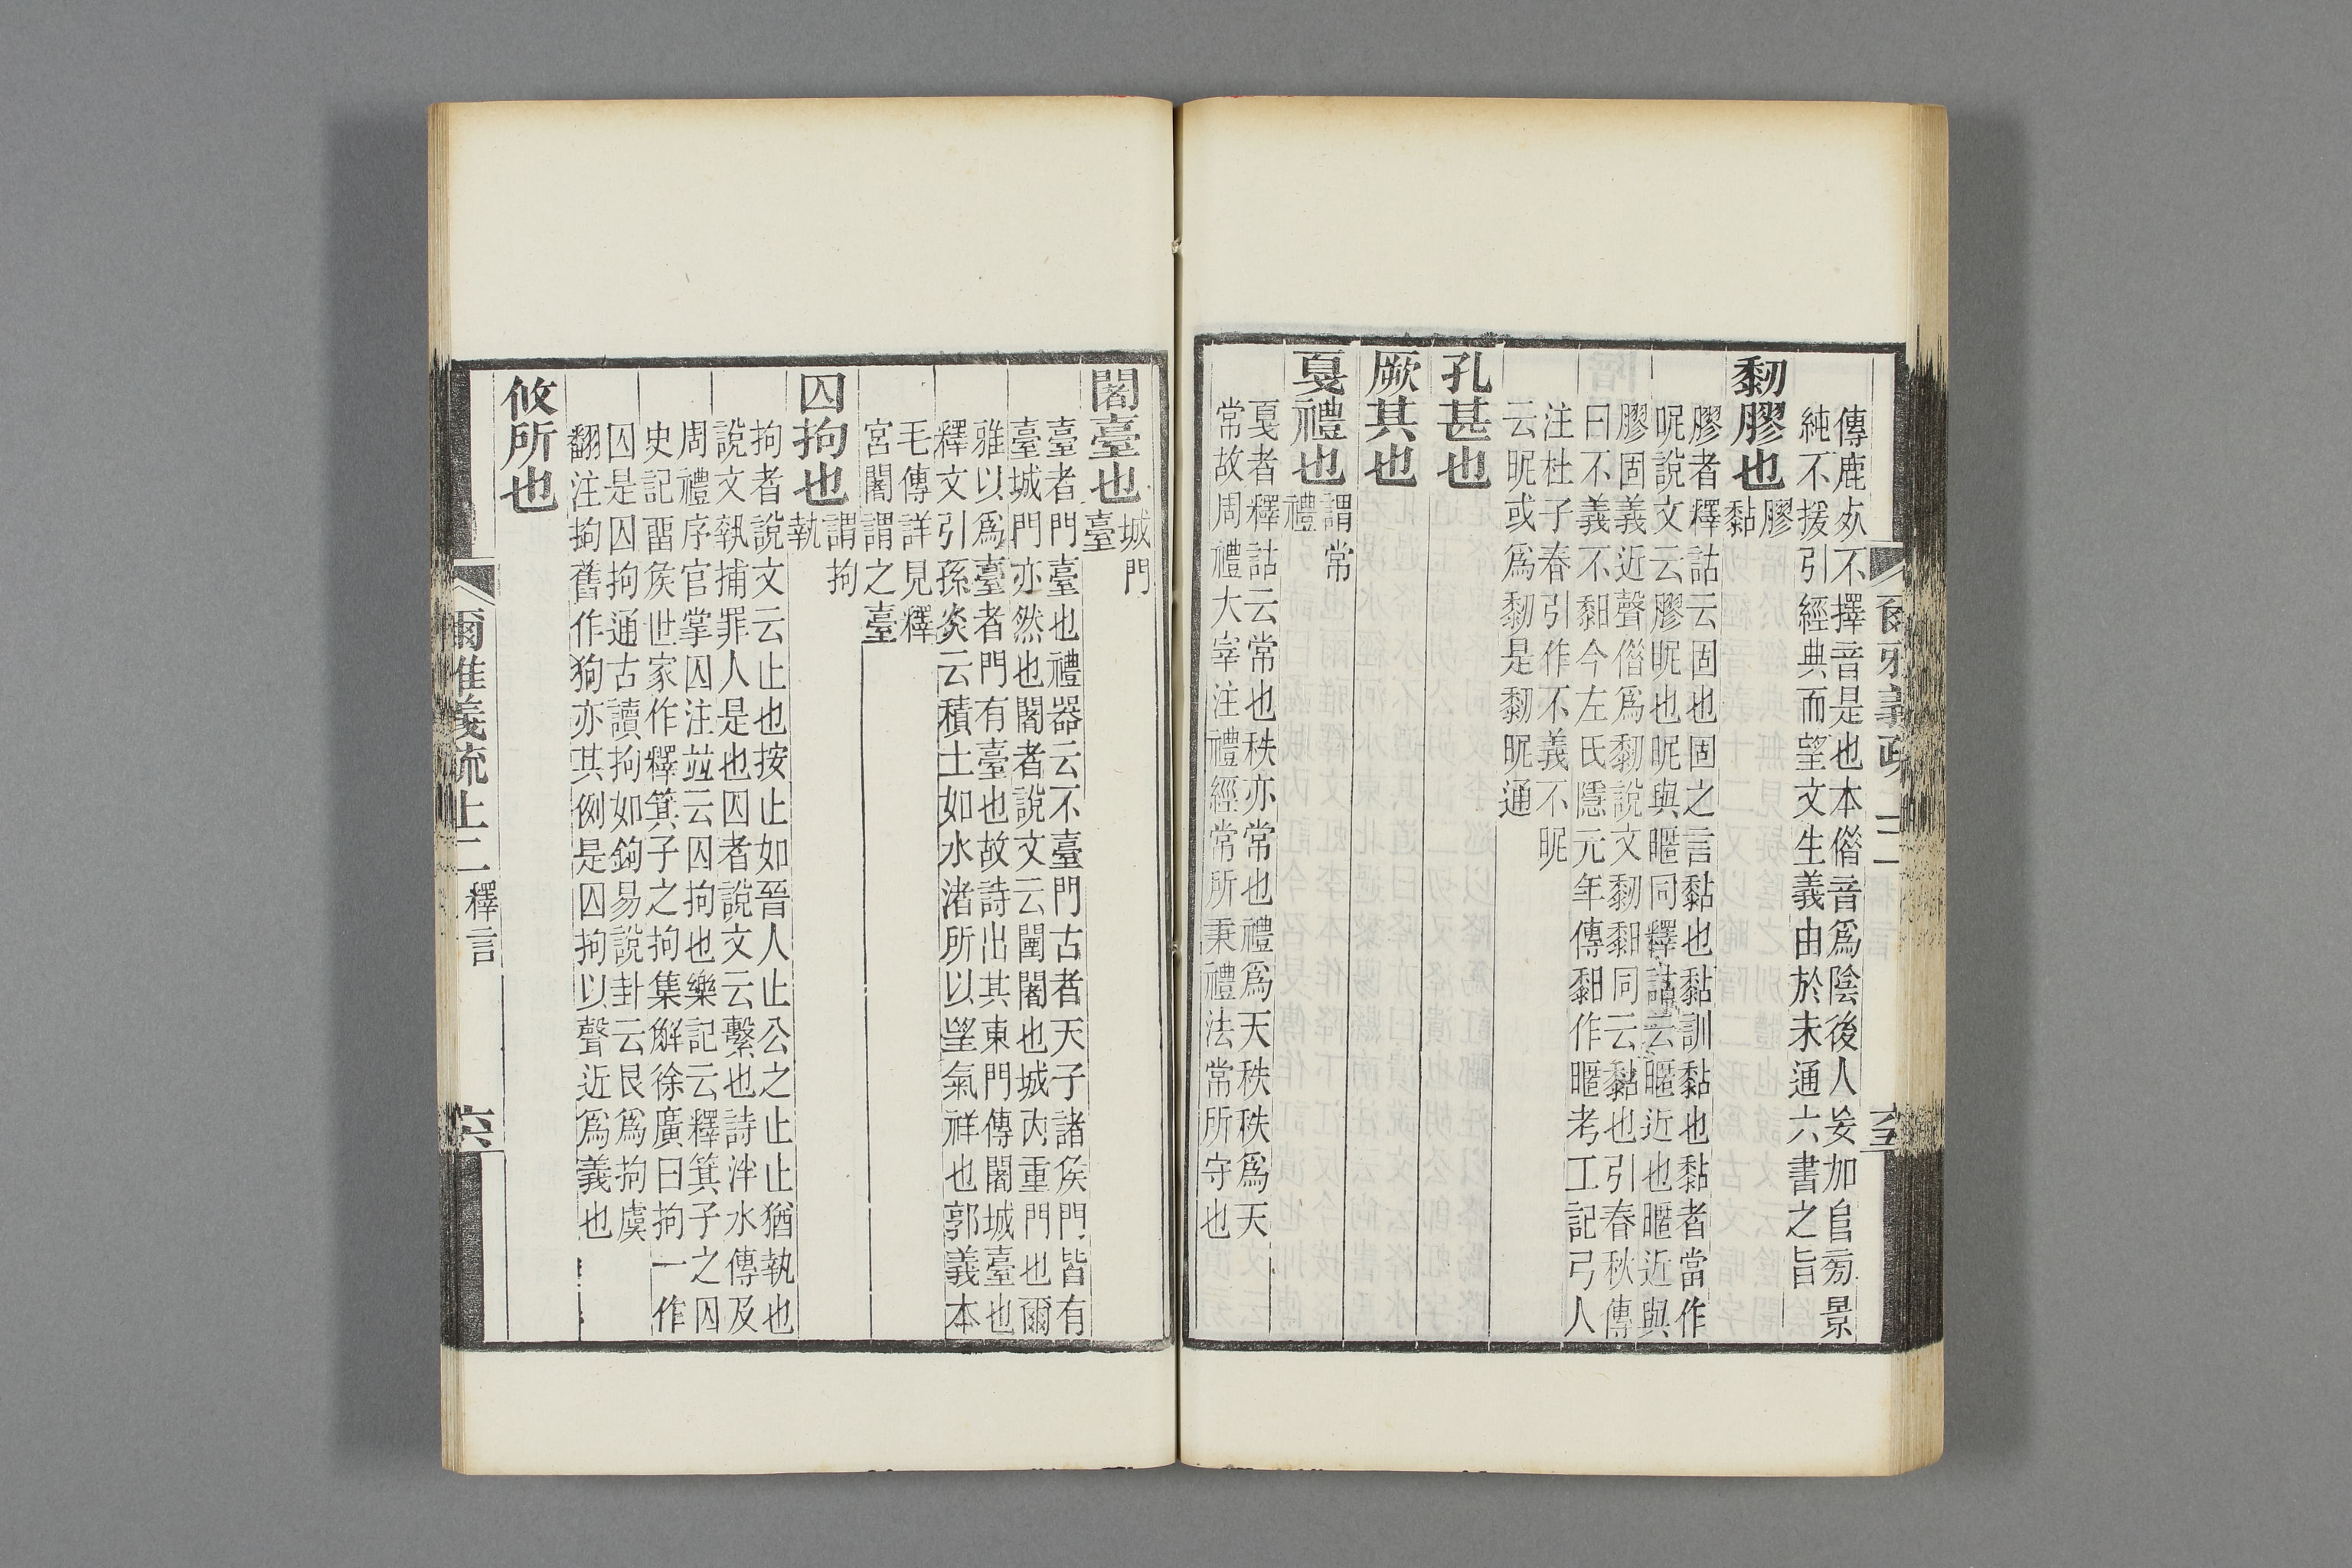 傳鹿㚇不擇音是也本偺音爲陰後人妄加㫗㫄景
純不援引經典而望文生義由於未通六書之旨
䵒膠也
膠
黏
膠者釋詁云固也固之言黏也黏訓黏也黏者當作
昵說文云膠昵也昵與暱同釋詁云暱近也暱近與
膠固義近聲偺爲䵒說文䵒䵑同云黏也引春秋傳
曰不義不䵑今左氏隱元年傳䵑作暱考工記弓人
注杜子春引作不義不昵
云昵或爲䵒是䵒昵通
孔甚也
厥其也
戛禮也
謂常
禮
戛者釋詁云常也秩亦常也禮爲天秩秩爲天
常故周禮大宰注禮經常所秉禮法常所守也
爾雅義疏
闍臺也
城門
臺
臺者門臺也禮器云不臺門古者天子諸侯門皆有
臺城門亦然也闍者說文云闉闍也城內重門也爾
雅以爲臺者門有臺也故詩出其東門傳闍城臺也
釋文引孫炎云積土如水渚所以望氣祥也郭義本
毛傳詳見釋
宮闍謂之臺
囚拘也
謂拘
執
拘者說文云止也按止如晉人止公之止止猶執也
說文執捕罪人是也囚者說文云繫也詩泮水傳及
周禮序官掌囚注竝云囚拘也樂記云釋箕子之囚
史記畱侯世家作釋箕子之拘集解徐廣曰拘一作
囚是囚拘通古讀拘如鉤易說卦云艮爲拘虞
翻注拘舊作狗亦其例是囚拘以聲近爲義也
攸所也
爾雅義疏上二 釋言